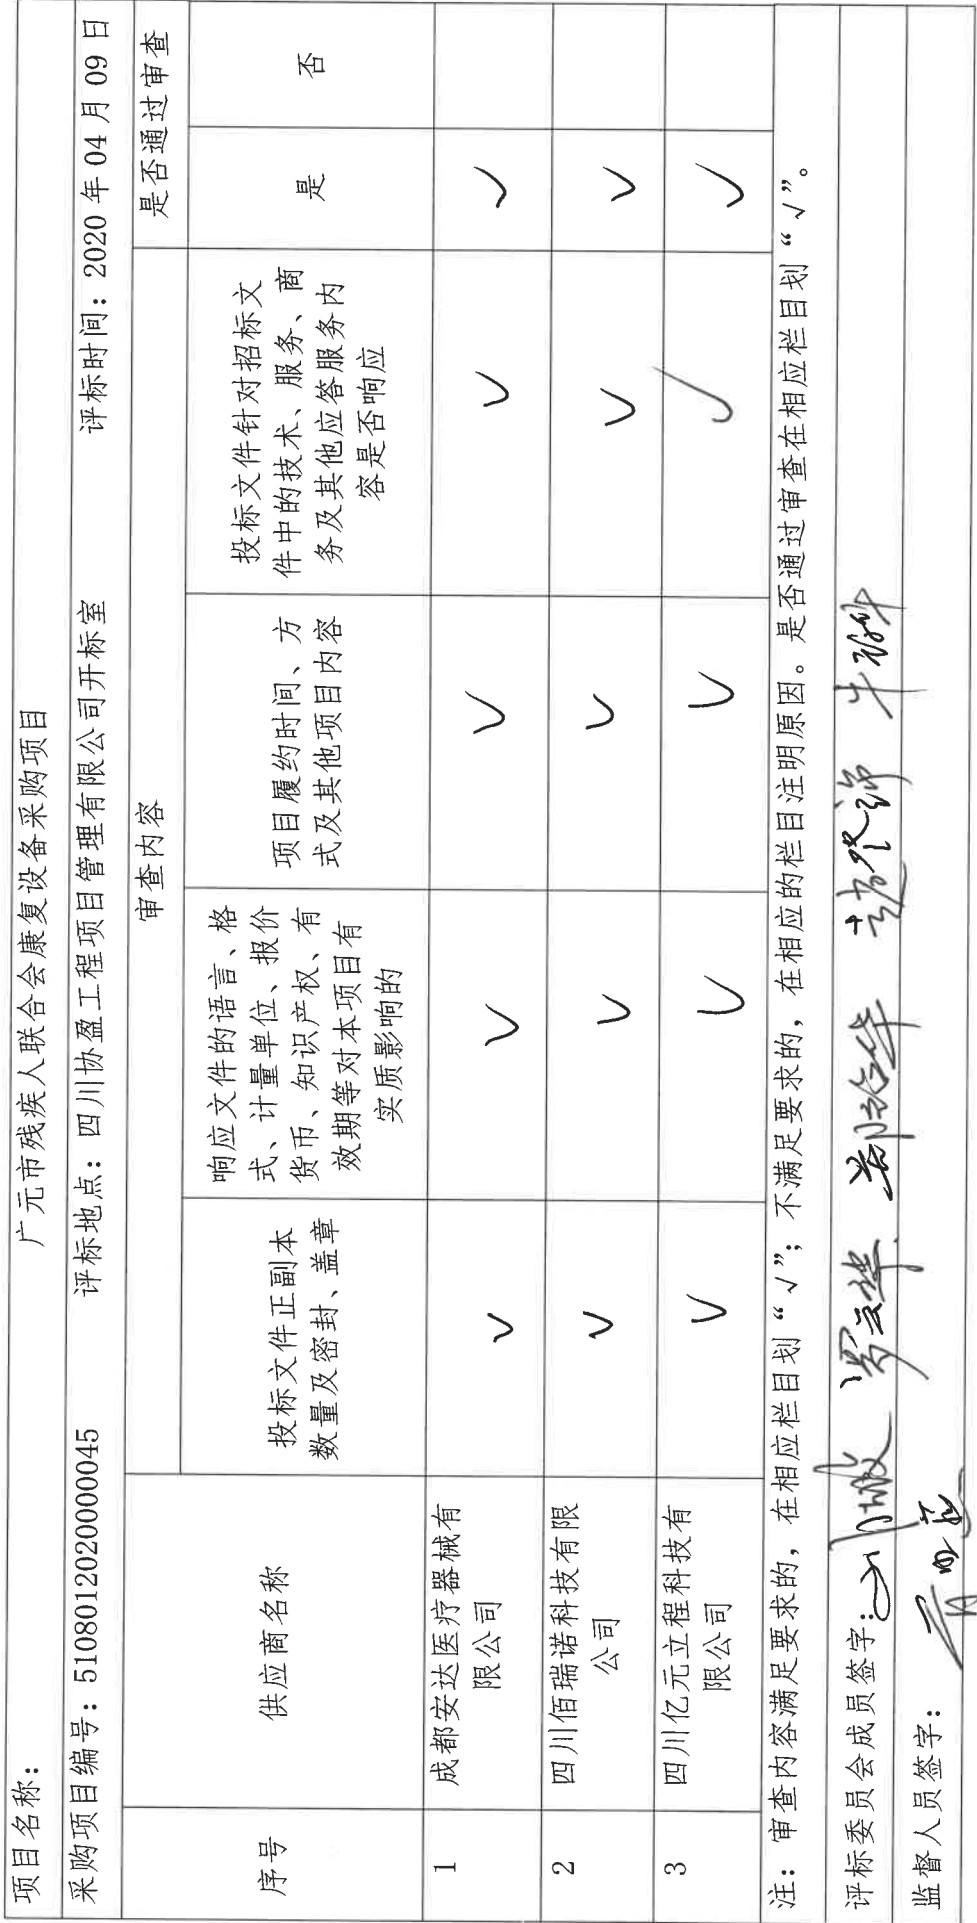 项目名称： 广元市残疾人联合会康复设备采购项目
采购项目编号：5108012020000045 评标地点：四川协盈工程项目管理有限公司开标室 评标时间：2020 年 04 月 09 日
序号 供应商名称 审查内容 是否通过审查
投标文件正副本
数量及密封、盖章
响应文件的语言、格
式、计量单位、报价
货币、知识产权、有
效期等对本项目有
实质影响的
项目履约时间、方
式及其他项目内容
投标文件针对招标文
件中的技术、服务、商
务及其他应答服务内
容是否响应
是 否
1 成都安达医疗器械有
限公司 √ √ √ √ √
2 四川佰瑞诺科技有限
公司 √ √ √ √ √
3 四川亿元立程科技有
限公司 √ √ √ √ √
注：审查内容满足要求的，在相应栏目划“√”；不满足要求的，在相应的栏目注明原因。是否通过审查在相应栏目划“√”。
评标委员会成员签字：
监督人员签字：